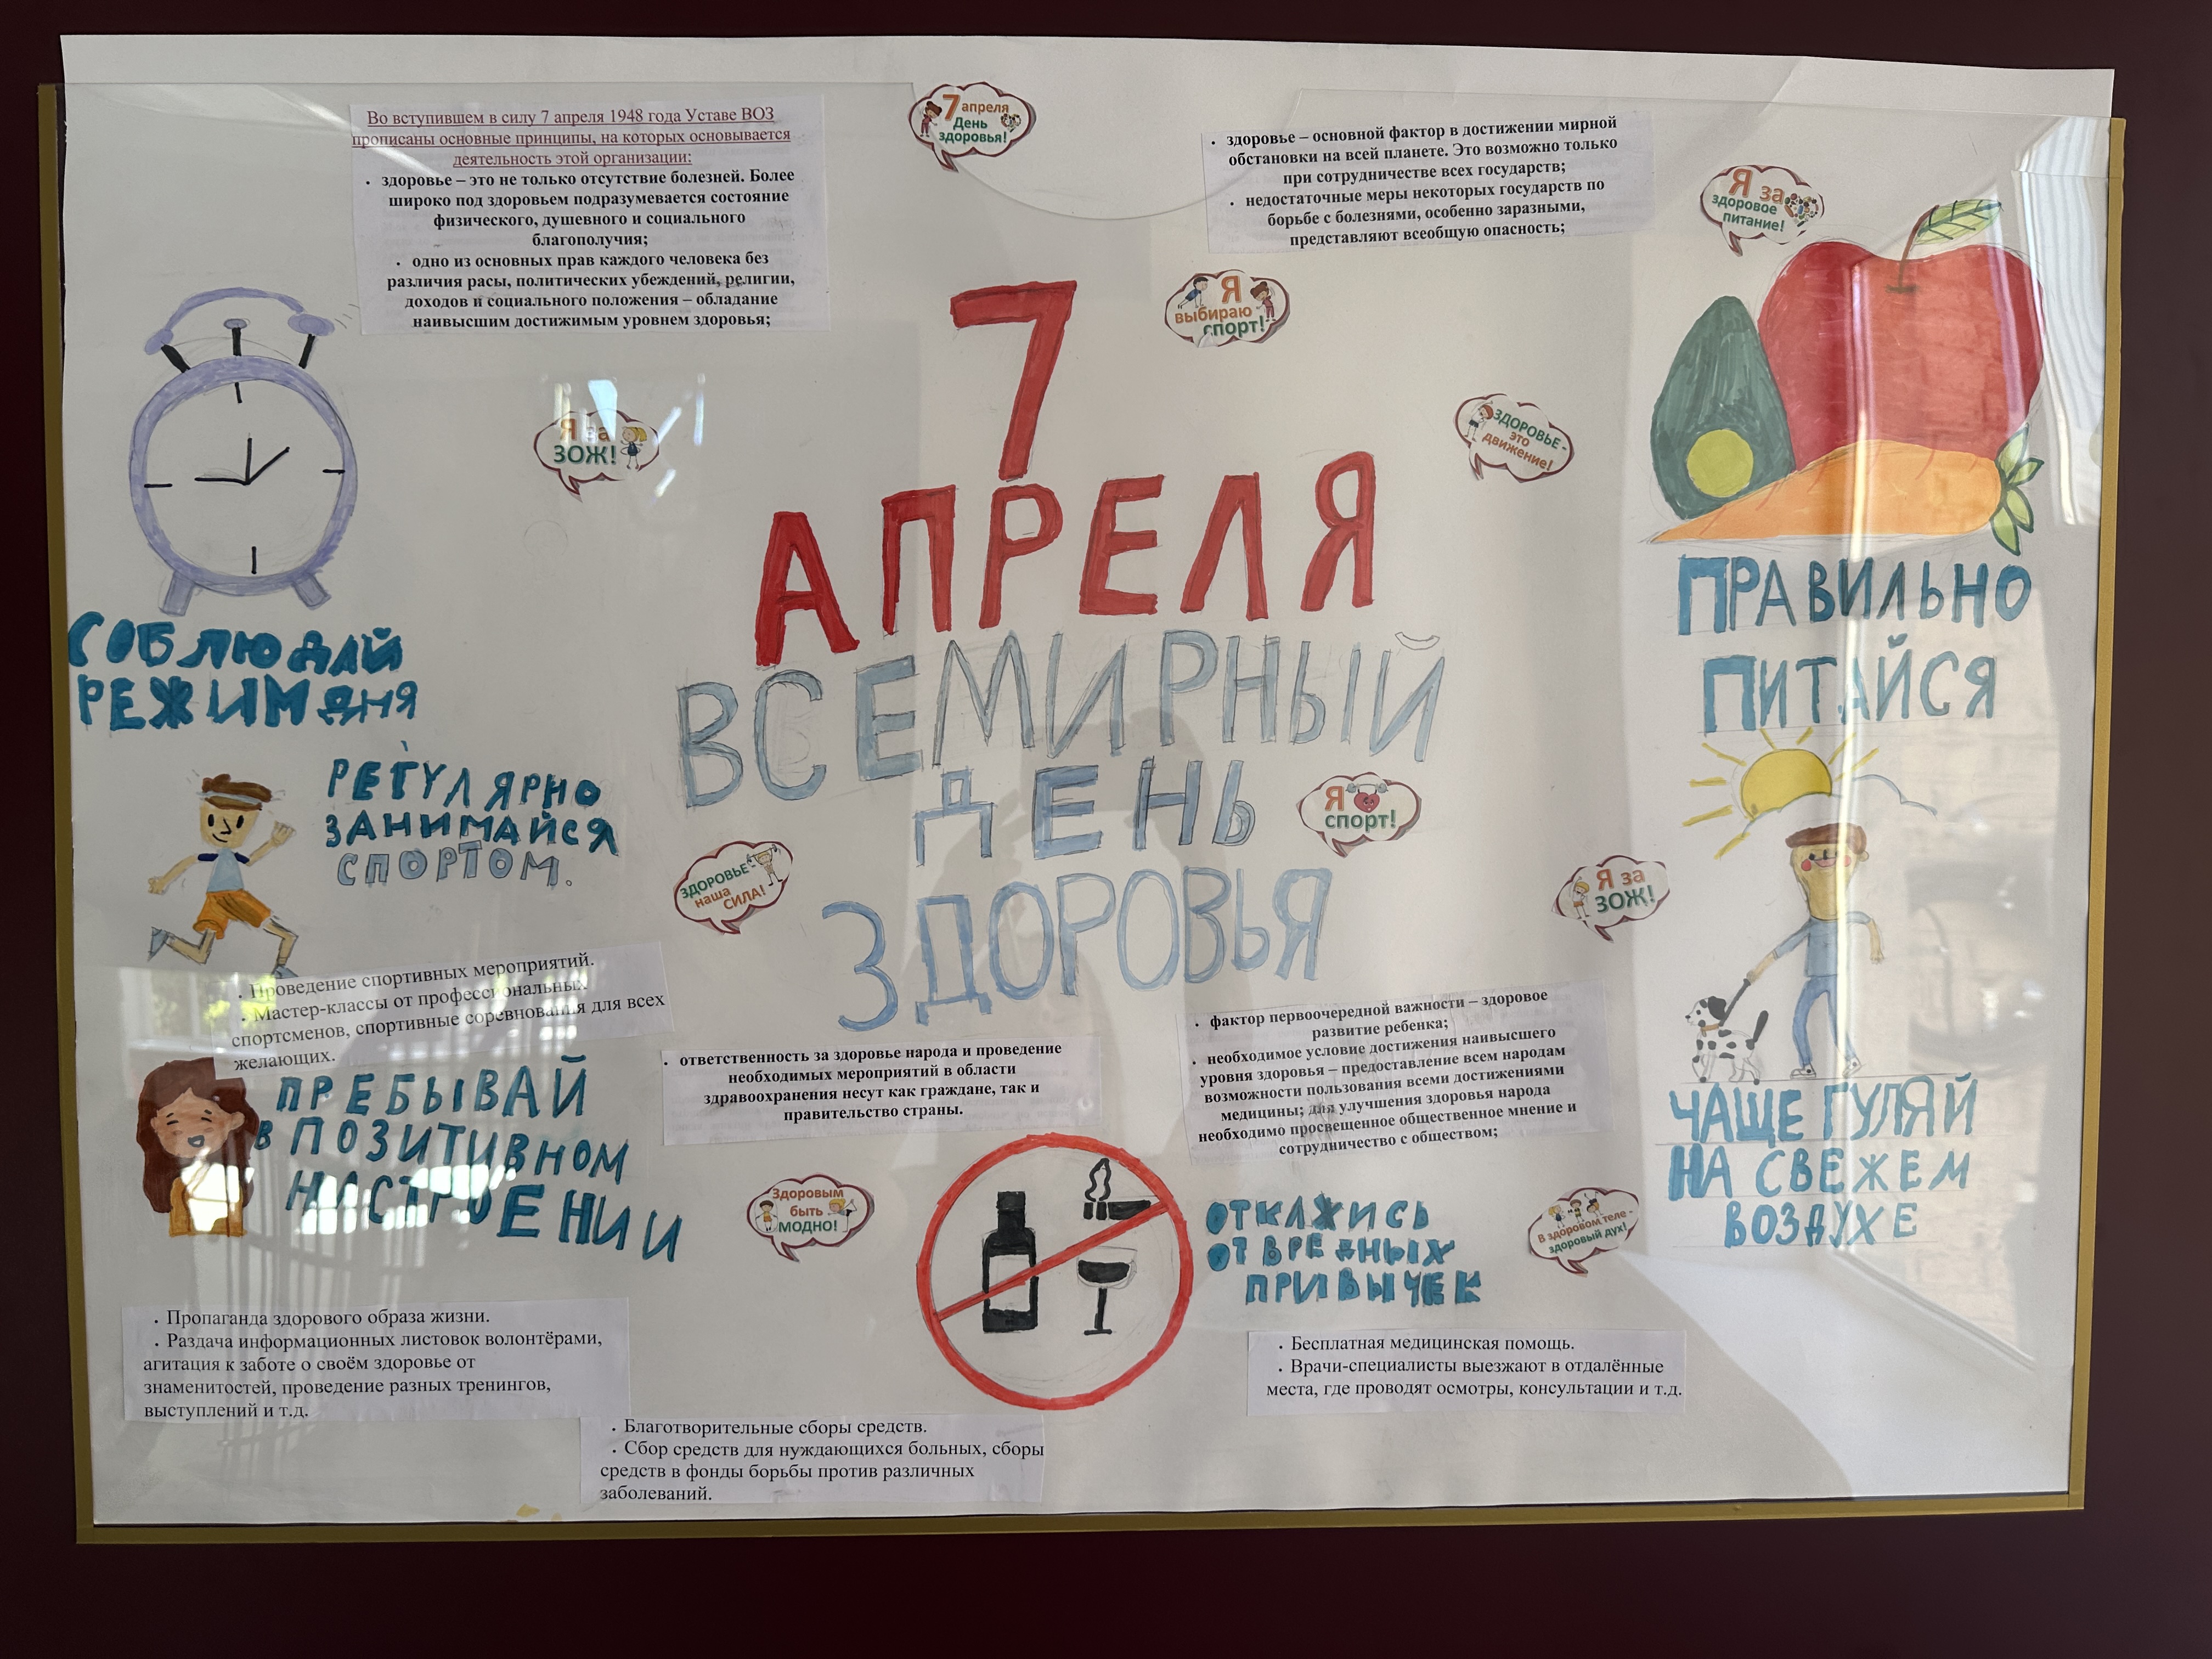 Во вступившем в силу 7 апреля 1948 года Уставе ВОЗ
прописаны основные принципы, на которых основывается
деятельность этой организации:
· здоровье – это не только отсутствие болезней. Более
широко под здоровьем подразумевается состояние
физического, душевного и социального
благополучия;
· одно из основных прав каждого человека без
различия расы, политических убеждений, религии,
доходов и социального положения – обладание
наивысшим достижимым уровнем здоровья;
7 апреля
День
здоровья!
· здоровье – основной фактор в достижении мирной
обстановки на всей планете. Это возможно только
при сотрудничестве всех государств;
· недостаточные меры некоторых государств по
борьбе с болезнями, особенно заразными,
представляют всеобщую опасность;
Я за
здоровое
питание!
Я
выбираю
спорт!
Я за
ЗОЖ!
ЗДОРОВЬЕ -
это
движение!
7
АПРЕЛЯ
ВСЕМИРНЫЙ
ДЕНЬ
ЗДОРОВЬЯ
СОБЛЮДАЙ
РЕЖИМ ДНЯ
ПРАВИЛЬНО
ПИТАЙСЯ
РЕГУЛЯРНО
ЗАНИМАЙСЯ
СПОРТОМ.
Я
спорт!
ЗДОРОВЬЕ -
наша
СИЛА!
Я за
ЗОЖ!
· Проведение спортивных мероприятий.
· Мастер-классы от профессиональных
спортсменов, спортивные соревнования для всех
желающих.
ПРЕБЫВАЙ
В ПОЗИТИВНОМ
НАСТРОЕНИИ
· ответственность за здоровье народа и проведение
необходимых мероприятий в области
здравоохранения несут как граждане, так и
правительство страны.
· фактор первоочередной важности – здоровое
развитие ребенка;
· необходимое условие достижения наивысшего
уровня здоровья – предоставление всем народам
возможности пользования всеми достижениями
медицины; для улучшения здоровья народа
необходимо просвещенное общественное мнение и
сотрудничество с обществом;
ЧАЩЕ ГУЛЯЙ
НА СВЕЖЕМ
ВОЗДУХЕ
Здоровым
быть
МОДНО!
ОТКАЖИСЬ
ОТ ВРЕДНЫХ
ПРИВЫЧЕК
В здоровом теле -
здоровый дух!
· Пропаганда здорового образа жизни.
· Раздача информационных листовок волонтёрами,
агитация к заботе о своём здоровье от
знаменитостей, проведение разных тренингов,
выступлений и т.д.
· Бесплатная медицинская помощь.
· Врачи-специалисты выезжают в отдалённые
места, где проводят осмотры, консультации и т.д.
· Благотворительные сборы средств.
· Сбор средств для нуждающихся больных, сборы
средств в фонды борьбы против различных
заболеваний.